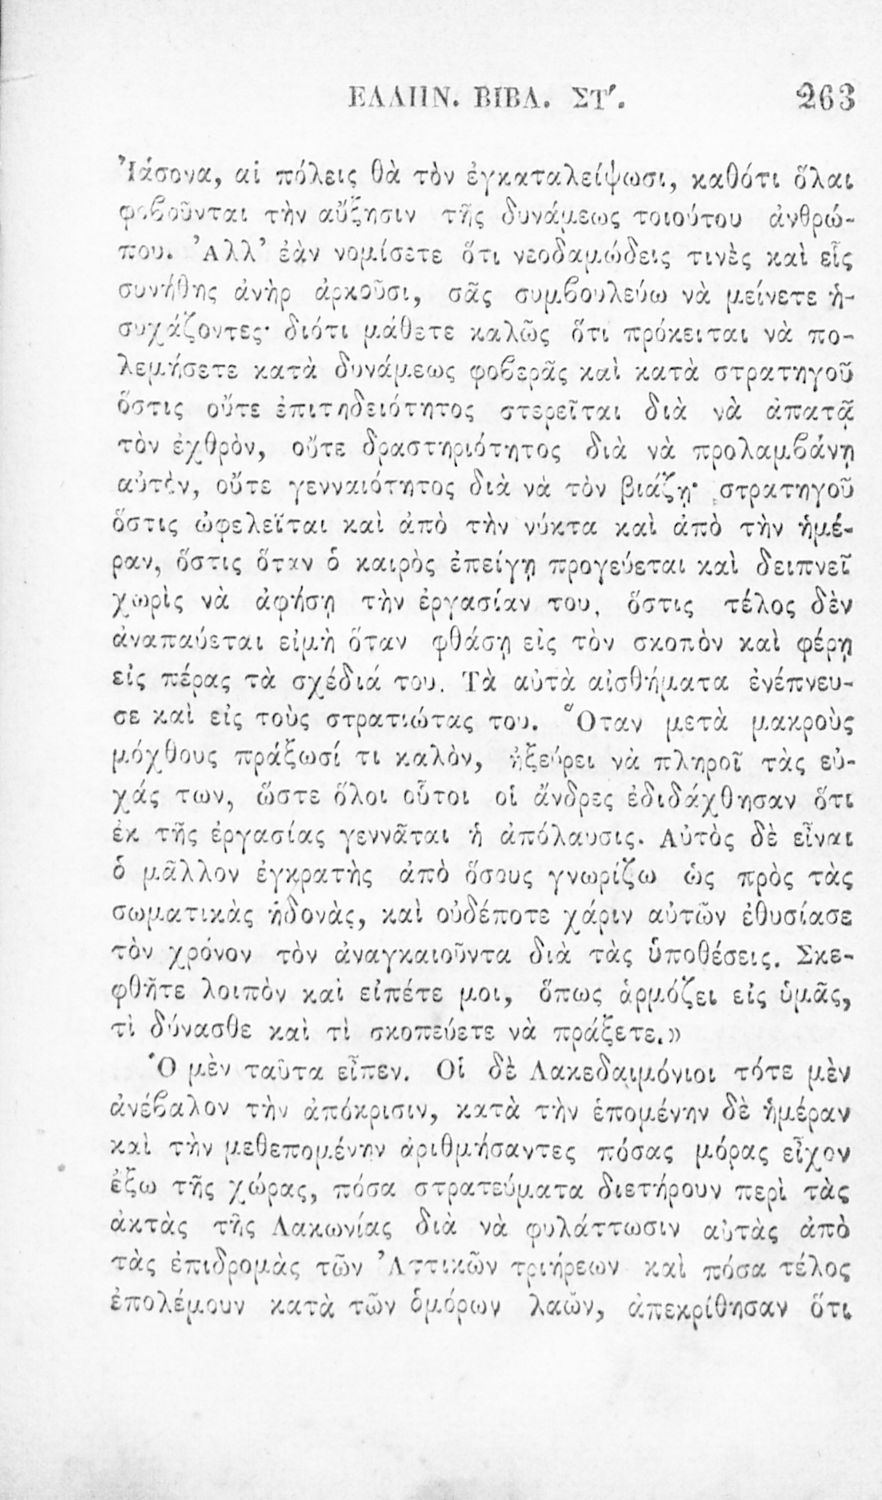 ΕΛΛΗΝ. ΒΙΒΛ. ΣΤ΄. 263
Ἰάσονα, αἱ πόλεις θὰ τὸν ἐγκαταλείψωσι, καθότι ὅλαι
φοβοῦνται τὴν αὔξησιν τῆς δυνάμεως τοιούτου ἀνθρώ-
που. Ἀλλ' ἐὰν νομίσετε ὅτι νεοδαμώδεις τινὲς καὶ εἷς
συνήθης ἀνὴρ ἀρκοῦσι, σᾶς συμβουλεύω νὰ μείνετε ἡ-
συχάζοντες· διότι μάθετε καλῶς ὅτι πρόκειται νὰ πο-
λεμήσετε κατὰ δυνάμεως φοβερᾶς καὶ κατὰ στρατηγοῦ
ὅστις οὔτε ἐπιτηδειότητος στερεῖται διὰ νὰ ἀπατᾷ
τὸν ἐχθρὸν, οὔτε δραστηριότητος διὰ νὰ προλαμβάνῃ
αὐτὸν, οὔτε γενναιότητος διὰ νὰ τὸν βιάζῃ· στρατηγοῦ
ὅστις ὠφελεῖται καὶ ἀπὸ τὴν νύκτα καὶ ἀπὸ τὴν ἡμέ-
ραν, ὅστις ὅταν ὁ καιρὸς ἐπείγῃ προγεύεται καὶ δειπνεῖ
χωρὶς νὰ ἀφήσῃ τὴν ἐργασίαν του, ὅστις τέλος δὲν
ἀναπαύεται εἰμὴ ὅταν φθάσῃ εἰς τὸν σκοπὸν καὶ φέρῃ
εἰς πέρας τὰ σχέδιά του. Τὰ αὐτὰ αἰσθήματα ἐνέπνευ-
σε καὶ εἰς τοὺς στρατιώτας του. Ὅταν μετὰ μακροὺς
μόχθους πράξωσί τι καλὸν, ἠξεύρει νὰ πληροῖ τὰς εὐ-
χάς των, ὥστε ὅλοι οὗτοι οἱ ἄνδρες ἐδιδάχθησαν ὅτι
ἐκ τῆς ἐργασίας γεννᾶται ἡ ἀπόλαυσις. Αὐτὸς δὲ εἶναι
ὁ μᾶλλον ἐγκρατὴς ἀπὸ ὅσους γνωρίζω ὡς πρὸς τὰς
σωματικὰς ἡδονὰς, καὶ οὐδέποτε χάριν αὐτῶν ἐθυσίασε
τὸν χρόνον τὸν ἀναγκαιοῦντα διὰ τὰς ὑποθέσεις. Σκε-
φθῆτε λοιπὸν καὶ εἰπέτε μοι, ὅπως ἁρμόζει εἰς ὑμᾶς,
τὶ δύνασθε καὶ τὶ σκοπεύετε νὰ πράξετε.»
Ὁ μὲν ταῦτα εἶπεν. Οἱ δὲ Λακεδαιμόνιοι τότε μὲν
ἀνέβαλον τὴν ἀπόκρισιν, κατὰ τὴν ἑπομένην δὲ ἡμέραν
καὶ τὴν μεθεπομένην ἀριθμήσαντες πόσας μόρας εἶχον
ἔξω τῆς χώρας, πόσα στρατεύματα διετήρουν περὶ τὰς
ἀκτὰς τῆς Λακωνίας διὰ νὰ φυλάττωσιν αὐτὰς ἀπὸ
τὰς ἐπιδρομὰς τῶν Ἀττικῶν τριήρεων καὶ πόσα τέλος
ἐπολέμουν κατὰ τῶν ὁμόρων λαῶν, ἀπεκρίθησαν ὅτι